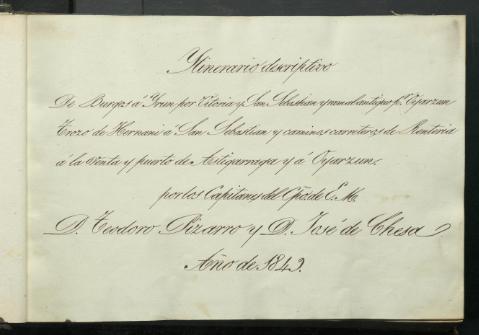 Ytinerario descriptivo
De Burgos á Yrun por Vitoria y San Sebastian y ramal antiguo pr. Oyarzun
Trozo de Hernani á San Sebastian y caminos carreteros de Renteria
á la Venta y puerto de Astigarraga y á Oyarzun,
por los Capitanes del Cpo. de E. M.
D. Teodoro Pizarro y D. José de Chesa
Año de 1849.